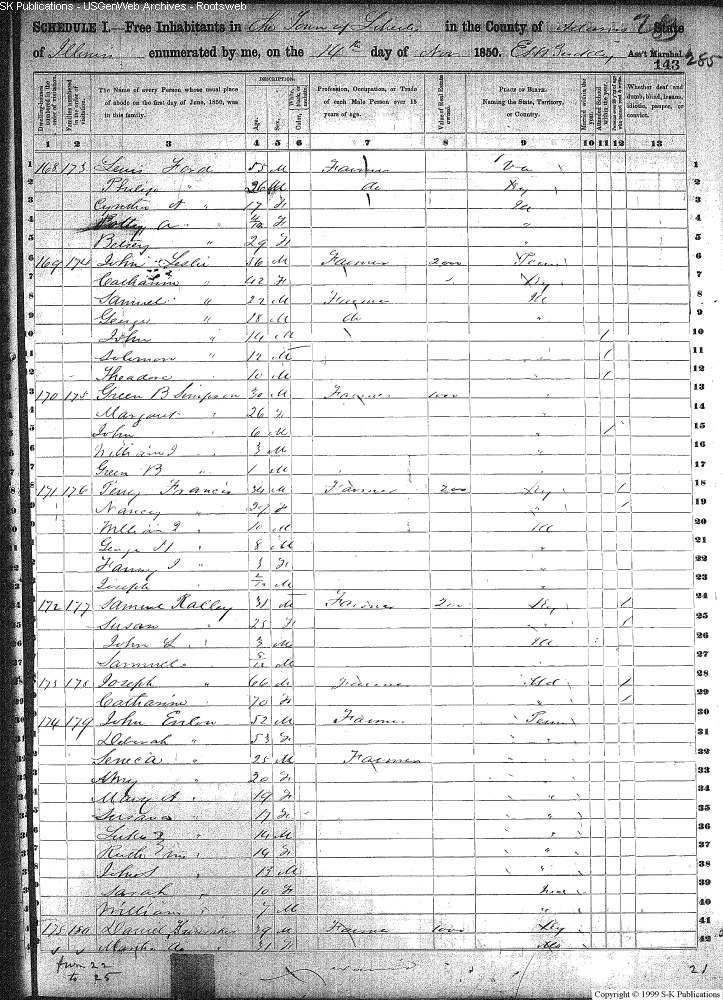 SK Publications - USGenWeb Archives - Rootsweb
SCHEDULE I.—Free Inhabitants in The Town of Liberty in the County of Adams State
of Illinois enumerated by me, on the 14th day of Nov 1850. Ass't Marshal.
143 285
Dwelling-houses numbered in the order of visitation.
Families numbered in the order of visitation.
The Name of every Person whose usual place of abode on the first day of June, 1850, was in this family.
DESCRIPTION.
Age.
Sex.
White, black, or mulatto.
Color,
Profession, Occupation, or Trade of each Male Person over 15 years of age.
Value of Real Estate owned.
PLACE OF BIRTH.
Naming the State, Territory, or Country.
Married within the year.
Attended School within the year.
Whether deaf and dumb, blind, insane, idiotic, pauper, or convict.
1 2 3 4 5 6 7 8 9 10 11 12 13
1 168 173 Lewis Ford 55 M Farmer Va 1
2 Philip " 26 M do Ky 2
3 Cynthia A " 17 F Ill 3
4 Polly A " F " 4
5 Betsey " 29 F " 5
6 169 174 John Leslie 56 M Farmer 2000 Tenn 6
7 Catharine " 42 F Ky 7
8 Samuel " 22 M Farmer Ill 8
9 George " 18 M do " 9
10 John " 14 M 1 10
11 Solomon " 12 M 1 11
12 Theadore 10 M 1 12
13 170 175 Green B Simpson 30 M Farmer 1000 13
14 Margaret " 26 F 14
15 John " 6 M " 1 15
16 William J 3 M " 16
17 Green B " 1 M " 17
18 171 176 Perry Francis 34 M Farmer 200 Ky 1 18
19 Nancy " 27 F " 1 19
20 William J " 10 M Ill 20
21 George H " 8 M " 21
22 Fanny J " 3 F " 22
23 Joseph M " 23
24 172 177 Samuel Ralley 31 M Farmer 200 Ky 1 24
25 Susan " 25 F " 1 25
26 John L " 3 M Ill 26
27 Samuel " M 27
28 173 178 Joseph " 66 M Farmer Md 1 28
29 Catharine " 70 F " 1 29
30 174 179 John Enlow 52 M Farmer Tenn 30
31 Deborah " 53 F " 31
32 Seneca " 25 M Farmer 32
33 Amy " 20 F 33
34 Mary A " 19 F " 34
35 Susana " 17 F " 35
36 Luke " 14 M " 36
37 Ruth " 14 F " 37
38 John 38
39 Sarah " 10 F 39
40 William " 7 M " 40
41 175 180 Daniel 39 M Farmer 1000 Ky 41
42 Martha 31 F 42
from 22
to 25
21
Copyright © 1999 S-K Publications